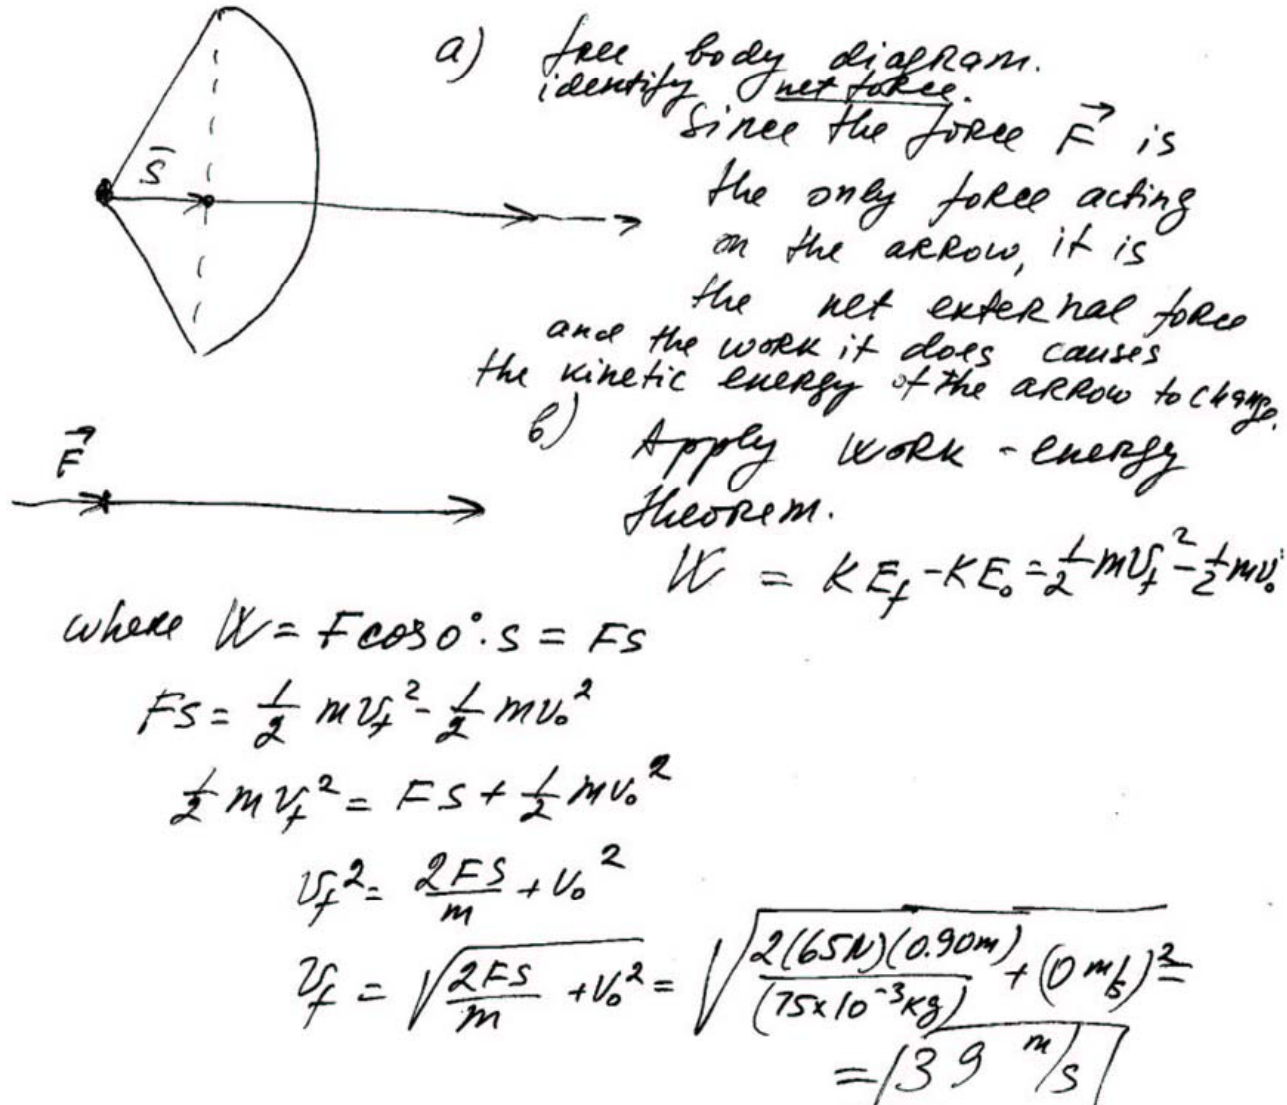 a) free body diagram.
identify net force.
S̅
Since the force F⃗ is
the only force acting
on the arrow, it is
the net external force
and the work it does causes
the kinetic energy of the arrow to change.
b) Apply work - energy
F⃗
theorem.
W = KE_f - KE_0 = 1/2 mv_f² - 1/2 mv_0²
where W = F cos 0° · s = FS
FS = 1/2 mv_f² - 1/2 mv_0²
1/2 mv_f² = FS + 1/2 mv_0²
v_f² = 2FS/m + v_0²
v_f = √(2FS/m + v_0²) = √(2(65N)(0.90m)/(75x10⁻³kg) + (0 m/s)²) =
= 39 m/s